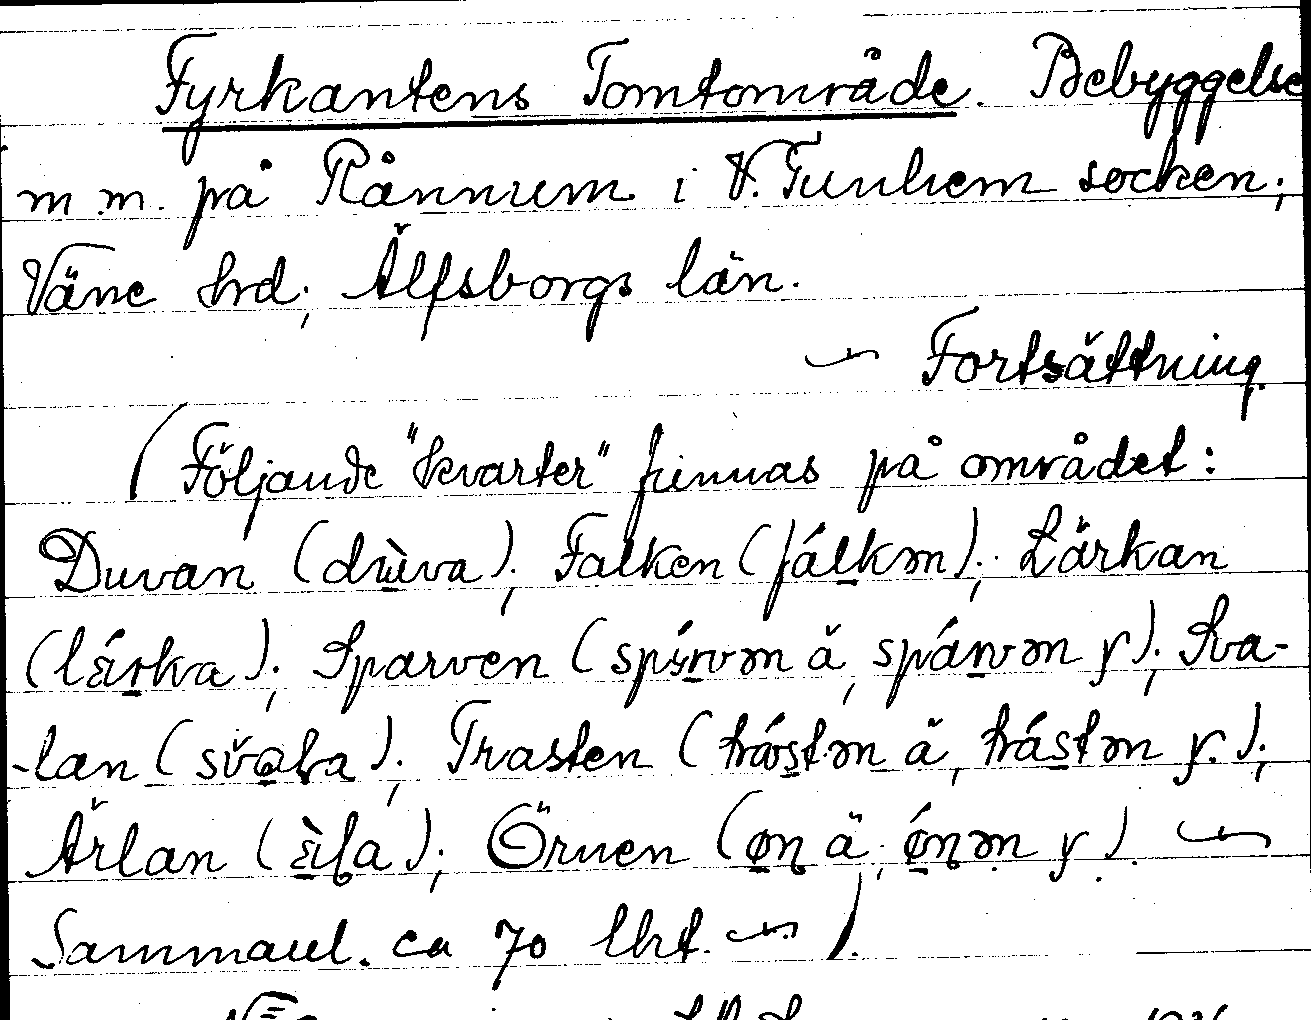 Fyrkantens Tomtområde. Bebyggelse
m.m. på Rånnum i V. Tunhem socken;
Väne hrd; Älfsborgs län.
~ Fortsättning
(Följande "kvarter" finnas på området:
Duvan (dùva); Falken (fálkən); Lärkan
(lǽrka); Sparven ( ä, spárvən y); Sva-
-lan ( ); Trasten ( ä, trástən y.);
Ärlan ( ); Örnen (øɳ ä; ǿɳən y). ~
Sammanl. ca 70 lht. ~ ).